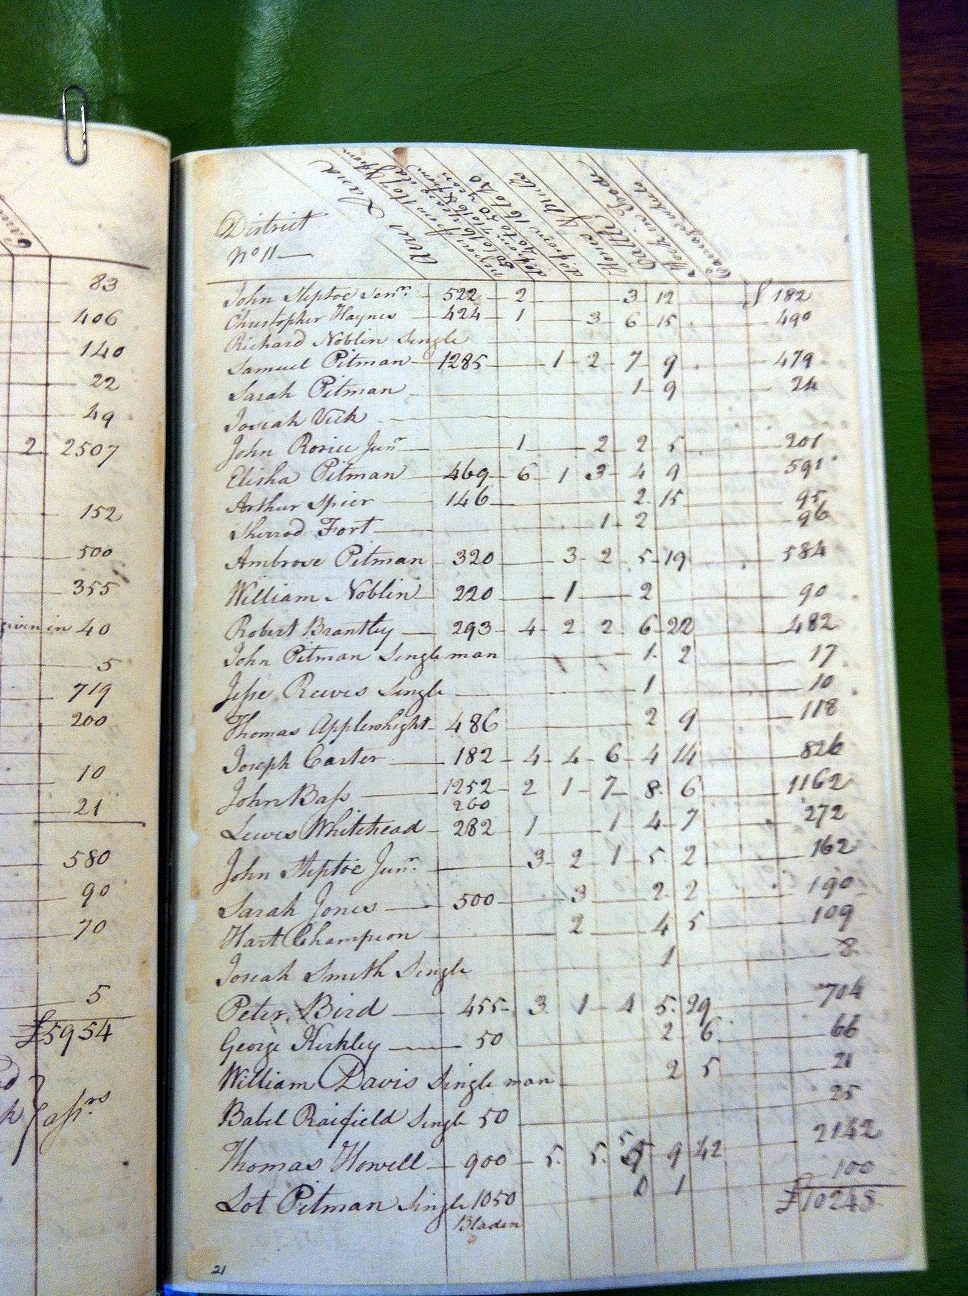 83
406
140
22
49
2 2507
152
500
355
given in 40
5
719
200
10
21
580
90
70
5
£5954
District
No 11
Acres Land
Horses & Mules
Cattle
John Steptoe Senr. 522 2 3 12 £ 182
Christopher Haynes 424 1 3 6 15 490
Richard Noblin Single
Samuel Pitman 1285 1 2 7 9 479
Sarah Pitman 1 9 24
Josiah Vick
John Rosiee Junr 1 2 2 5 201
Elisha Pitman 469 6 1 3 4 9 591
Arthur Spier 146 2 15 95
Sherrod Fort 1 2 96
Ambrose Pitman 320 3 2 5 19 584
William Noblin 220 1 2 90
Robert Brantley 293 4 2 2 6 22 482
John Pitman Single man 1 2 17
Jesse Reeves Single 1 10
Thomas Applewhight 486 2 9 118
Joseph Carter 182 4 4 6 4 14 826
John Bass 1252 2 1 7 8 6 1162
260
Lewis Whitehead 282 1 1 4 7 272
John Steptoe Junr. 3 2 1 5 2 162
Sarah Jones 500 3 2 2 190
Hart Champion 2 4 5 109
Josiah Smith Single 1 8
Peter Bird 455 3 1 4 5 29 704
George Kirkley 50 2 6 66
William Davis Single man 2 5 21
Babel Raifield Single 50 25
Thomas Howell 900 5 5 9 42 2142
Lot Pitman Single 1050 0 1 100
Bladen £10248
21